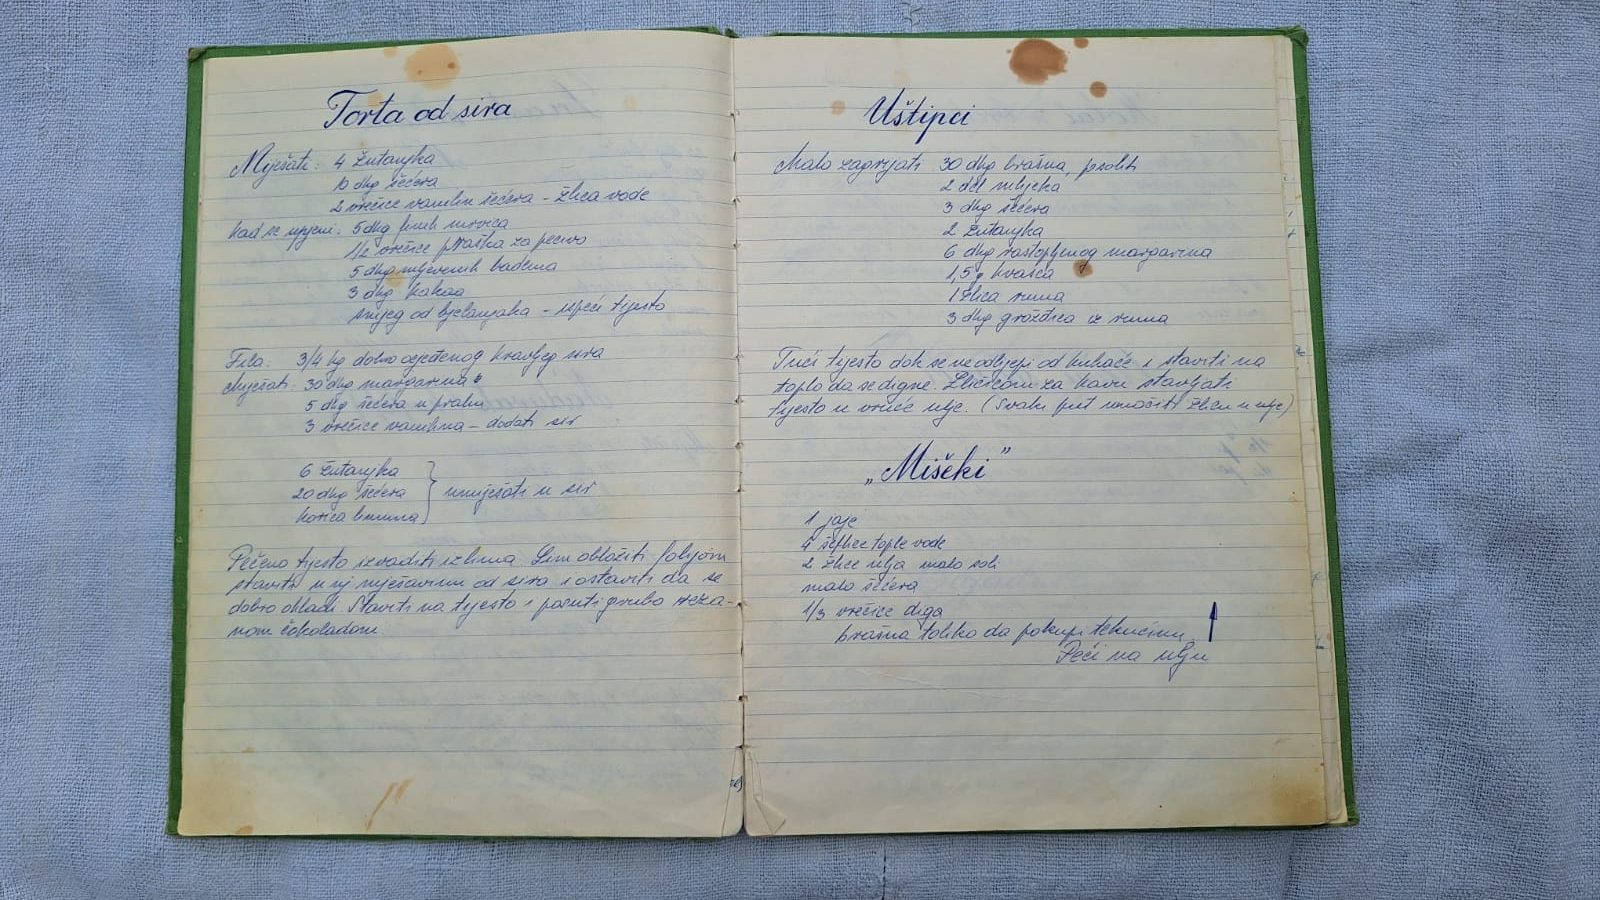 Torta od sira
Miješati: 4 žutanjka
10 dkg šećera
2 vrećice vanilin šećera - žlica vode
kad se upjeni: 5 dkg finih mrvica
1/2 vrećice praška za pecivo
5 dkg mljevenih badema
3 dkg kakaa
snijeg od bjelanjaka - ispeći tijesto
Fila: 3/4 kg dobro ocjeđenog kravljeg sira
Miješati: 30 dkg margarina
5 dkg šećera u prahu
3 vrećice vanilina - dodati sir
6 žutanjka
20 dkg šećera } umiješati u sir
korica limuna
Pečeno tijesto izvaditi iz lima. Lim obložiti folijom
staviti u nj mješavinu od sira i ostaviti da se
dobro ohladi. Staviti na tijesto i posuti grubo reza-
nom čokoladom
Uštipci
Malo zagrijati 30 dkg brašna, posoliti
2 del mlijeka
3 dkg šećera
2 žutanjka
6 dkg rastopljenog margarina
1,5 g kvasca
1 žlica ruma
3 dkg grožđica iz ruma
Tući tijesto dok se ne odljepi od kuhače i staviti na
toplo da se digne. Žličicom za kavu stavljati
tijesto u vruće ulje. (Svaki put umočiti žlicu u ulje)
„Mišeki"
1 jaje
4 šeflice tople vode
2 žlice ulja malo soli
malo šećera
1/3 vrećice diga
brašna toliko da pokupi tekućinu
Peći na ulju